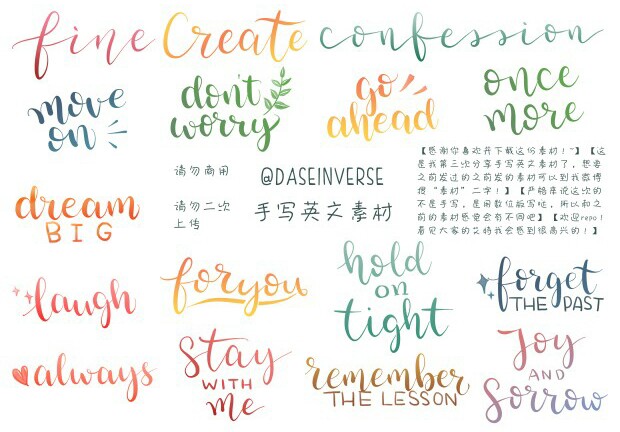 fine Create confession
move
on
don't
worry
go
ahead
once
more
请勿商用
请勿二次
上传
@DASEINVERSE
手写英文素材
【感谢你喜欢并下载这份素材！~】【这
是我第三次分享手写英文素材了，想要
之前发过的之前发的素材可以到我微博
搜“素材”二字！】【严格来说这次的
不是手写，是用数位板写哒，所以和之
前的素材感觉会有不同吧】【欢迎repo！
看见大家的艾特我会感到很高兴的！】
dream
BIG
laugh
for you
hold
on
tight
forget
THE PAST
always
stay
WITH
me
remember
THE LESSON
Joy
AND
Sorrow